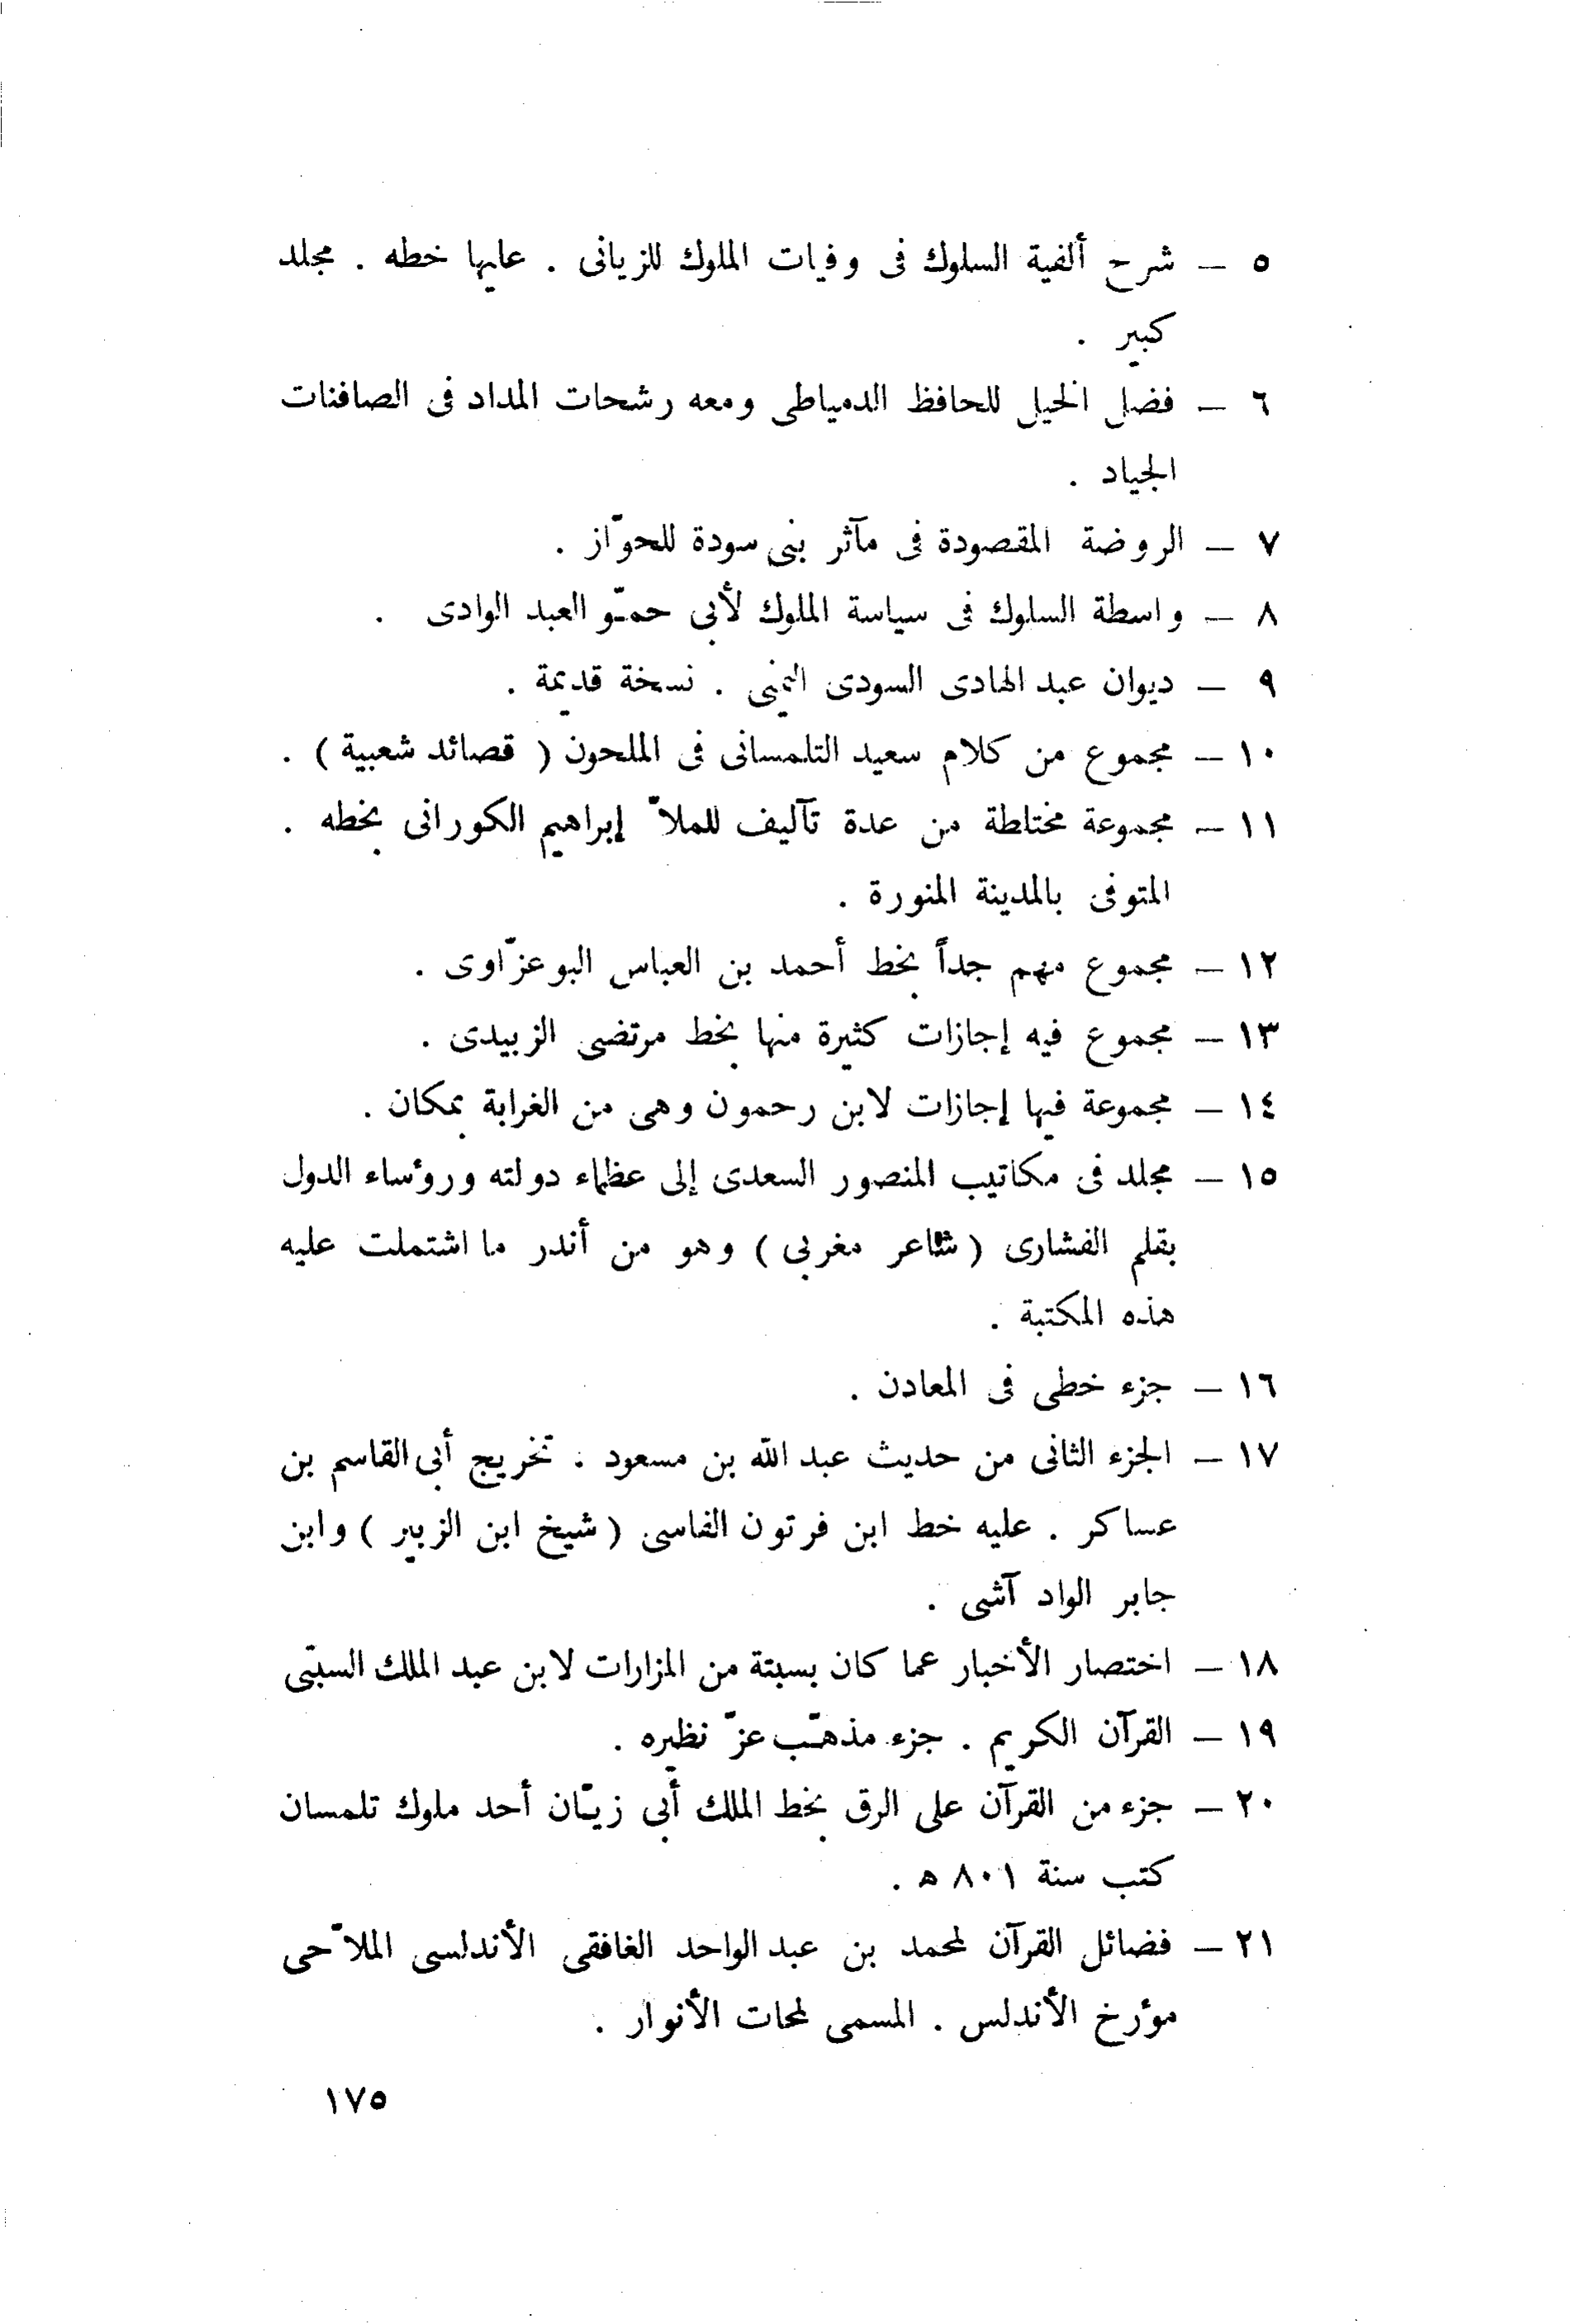 ٥ — شرح ألفية السلوك فى وفيات الملوك للزيانى . عليها خطه . مجلد
كبير .
٦ — فضل الخيل للحافظ الدمياطى ومعه رشحات المداد فى الصافنات
الجياد .
٧ — الروضة المقصودة فى مآثر بنى سودة للحوّاز .
٨ — واسطة السلوك فى سياسة الملوك لأبى حمّو العبد الوادى .
٩ — ديوان عبد الهادى السودى اليمنى . نسخة قديمة .
١٠ — مجموع من كلام سعيد التلمسانى فى الملحون ( قصائد شعبية ) .
١١ — مجموعة مختاطة من عدة تآليف للملاّ إبراهيم الكورانى بخطه .
المتوفى بالمدينة المنورة .
١٢ — مجموع مهم جداً بخط أحمد بن العباس البوعزّاوى .
١٣ — مجموع فيه إجازات كثيرة منها بخط مرتضى الزبيدى .
١٤ — مجموعة فيها إجازات لابن رحمون وهى من الغرابة بمكان .
١٥ — مجلد فى مكاتيب المنصور السعدى إلى عظماء دولته ورؤساء الدول
بقلم الفشارى ( شاعر مغربى ) وهو من أندر ما اشتملت عليه
هذه المكتبة .
١٦ — جزء خطى فى المعادن .
١٧ — الجزء الثانى من حديث عبد الله بن مسعود . تخريج أبى القاسم بن
عساكر . عليه خط ابن فرتون الفاسى ( شيخ ابن الزبير ) وابن
جابر الواد آشى .
١٨ — اختصار الأخبار عما كان بسبتة من المزارات لابن عبد الملك السبتى
١٩ — القرآن الكريم . جزء مذهّب عزّ نظيره .
٢٠ — جزء من القرآن على الرق بخط الملك أبى زيّان أحد ملوك تلمسان
كتب سنة ٨٠١ ه .
٢١ — فضائل القرآن لمحمد بن عبد الواحد الغافقى الأندلسى الملاّحى
مؤرخ الأندلس . المسمى لمحات الأنوار .
١٧٥